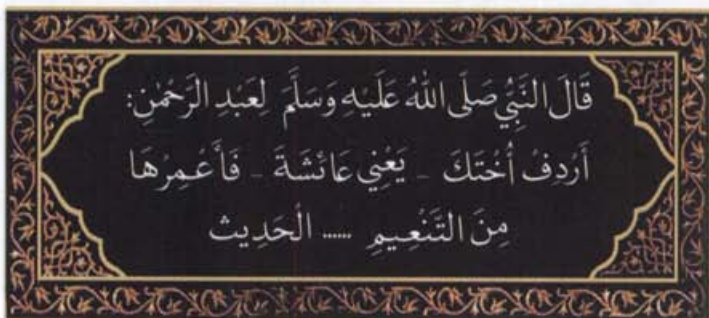 قَالَ النَّبِيُّ صَلَّى اللهُ عَلَيْهِ وَسَلَّمَ لِعَبْدِ الرَّحْمٰنِ:
أَرْدِفْ أُخْتَكَ - يَعْنِي عَائشَةَ - فَأَعْمِرْهَا
مِنَ التَّنْعِيمِ ...... الْحَدِيث